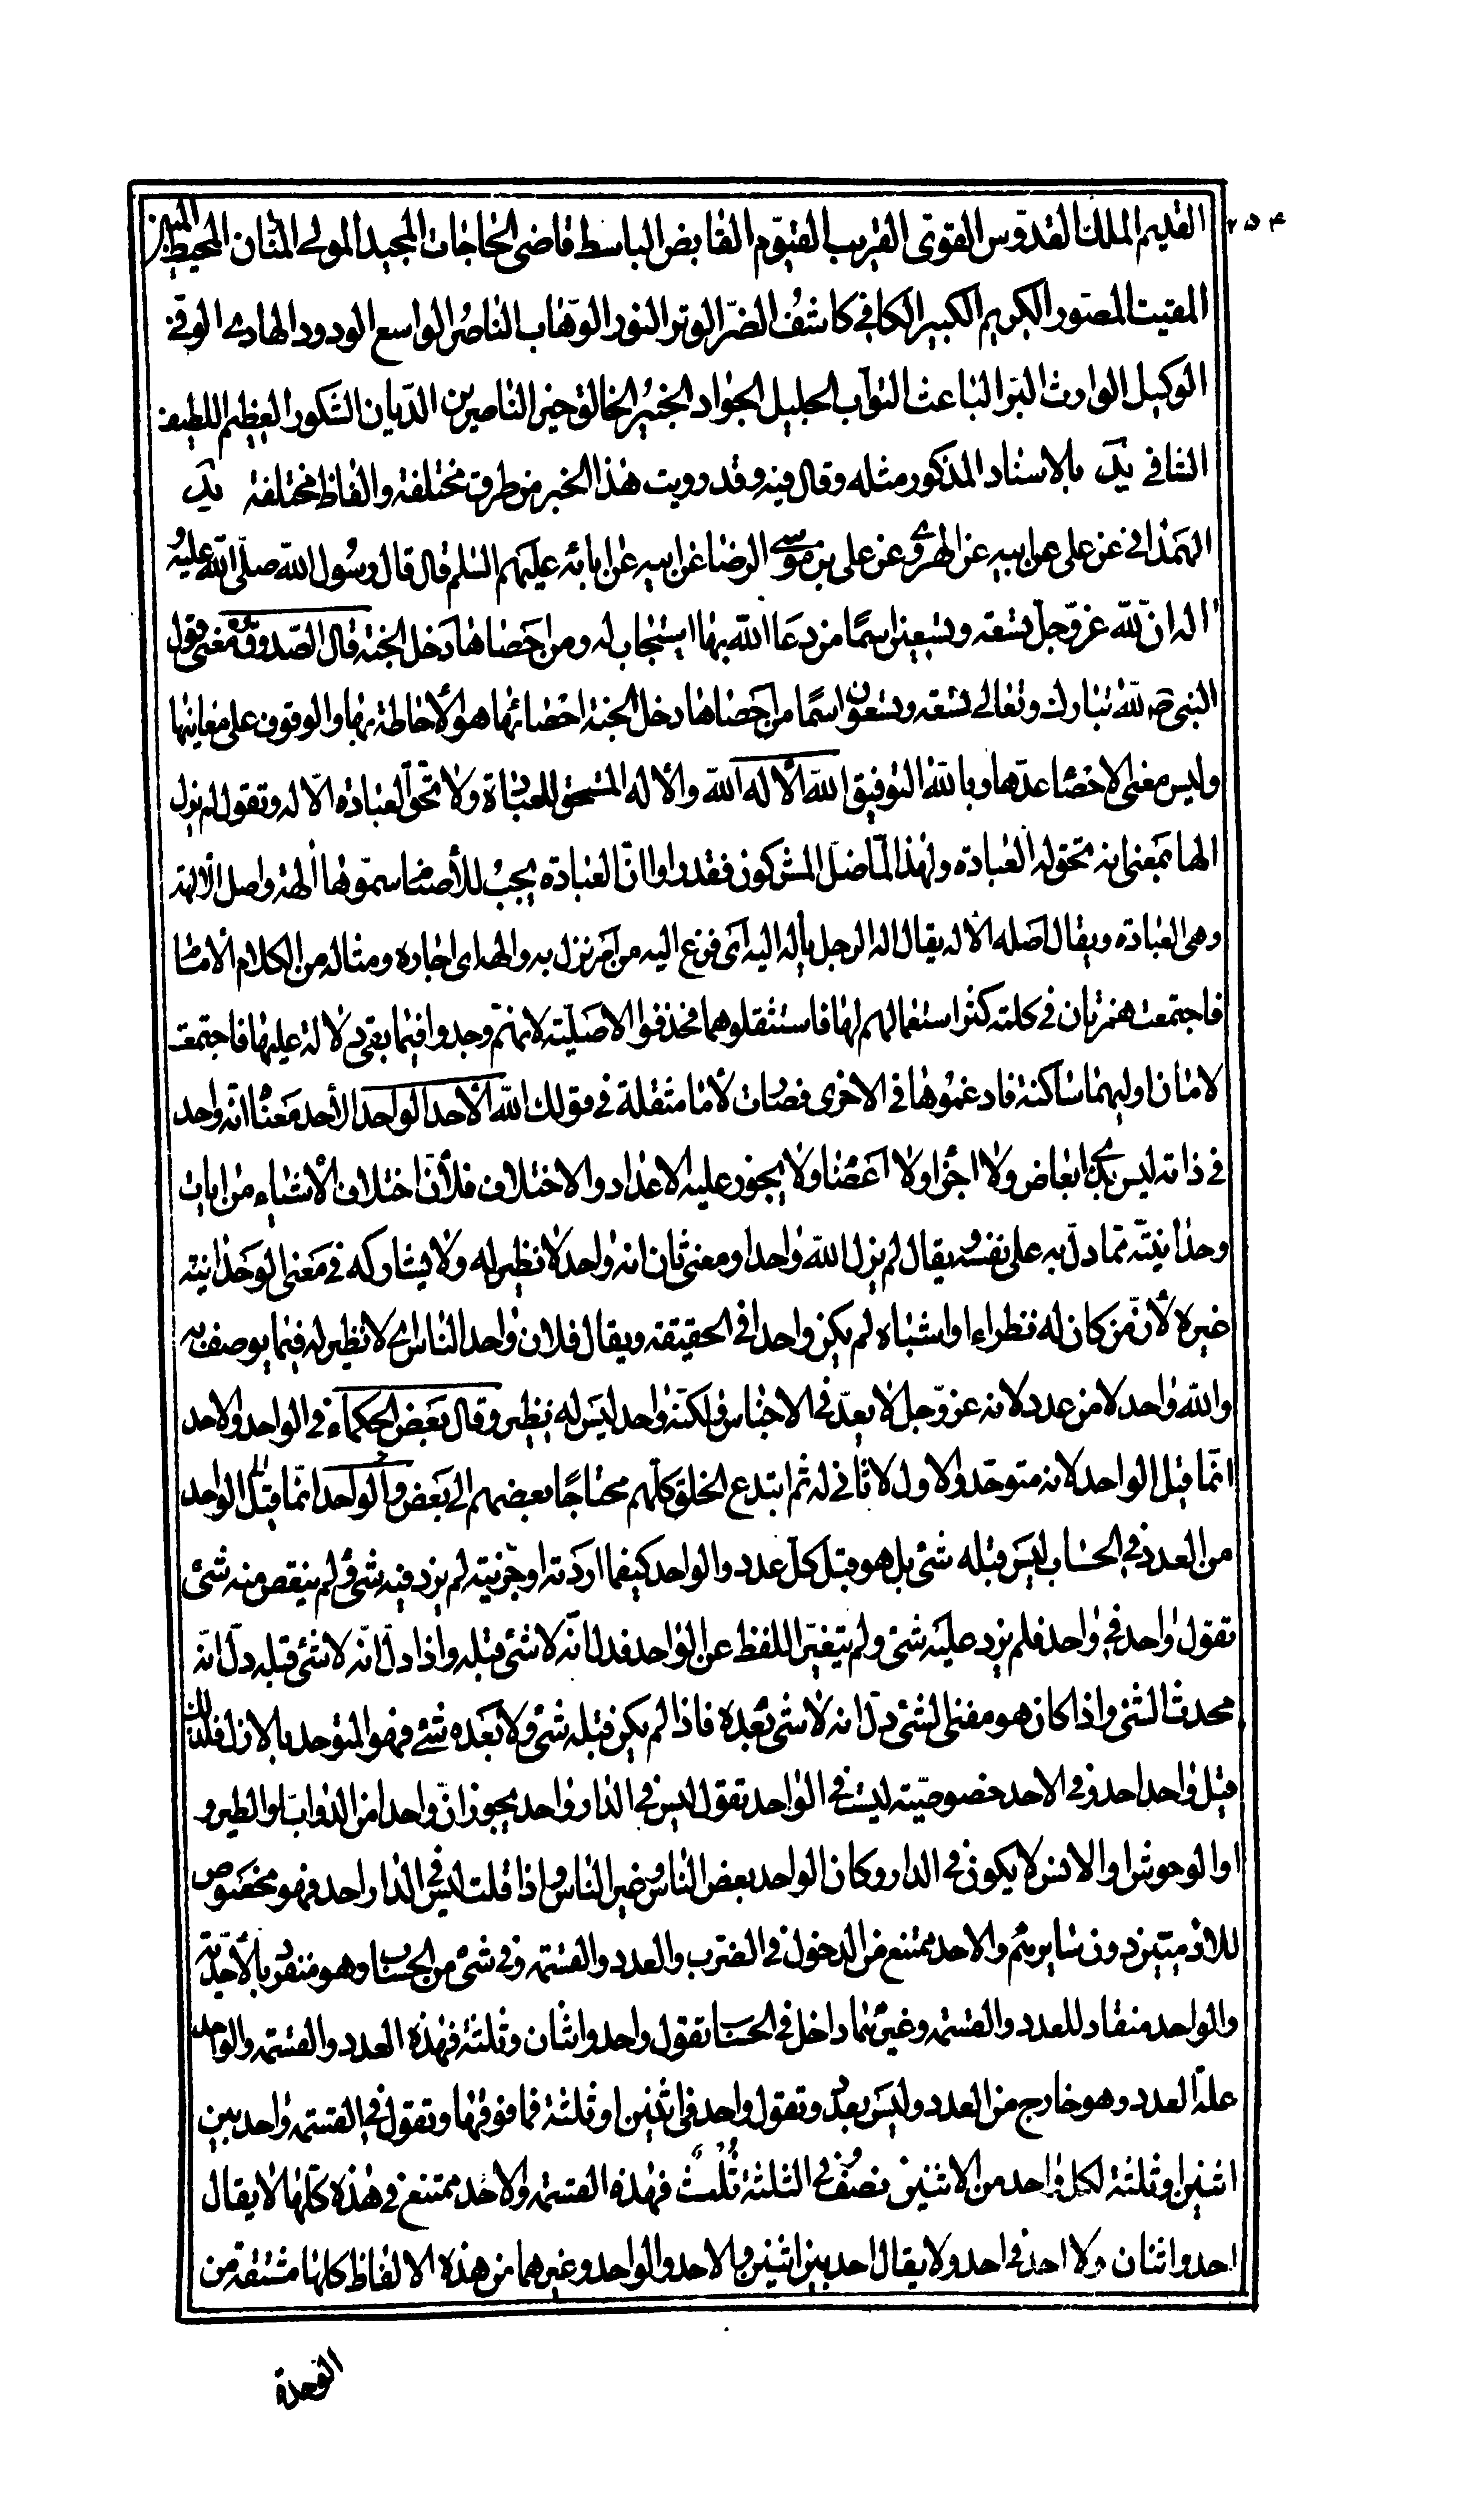 ٢٥٤
القديم الملك القدوس القوى القريب القيوم القابض الباسط قاضى الحاجات المجيد المولى المنان المحيط المبين
المقيت المصور الكريم الكبير الكافى كاشف الضر الوتر النور الوهاب الناصر الواسع الودود الهادى الوفى
الوكيل الوارث البر الباعث التواب الجليل الجواد الخبير الخالق خير الناصرين الديان الشكور العظيم اللطيف
الشافى يد بالاسناد المذكور مثله وقال فيه وقد رويت هذا الخبر من طرق مختلفة والفاظ مختلفة يد
الهمدانى عن على عن ابيه عن الهروى عن على بن موسى الرضا عن ابيه عن ابائه عليهم السلم قال قال رسول الله صلى الله عليه
اله ان لله عز وجل تسعة وتسعين اسما من دعا الله بها استجاب له ومن احصاها دخل الجنة قال الصدوق معنى قول
النبى ص لله تبارك وتعالى تسعة وتسعون اسما من احصاها دخل الجنة احصائها هو الاحاطة بها والوقوف على معانيها
وليس معنى الاحصا عدها وبالله التوفيق الله الاله الله والاله المستحق للعبادة ولا تحق العبادة الا له وتقول لم يزل
الها بمعنى انه تحق له العبادة ولهذا لما ضل المشركون فقدروا ان العبادة يجب للاصنام سموها الهة واصل الالهة
وهى العبادة ويقال اصله الاله يقال اله الرجل ياله اليه اى فزع اليه من امر نزل به والهه اى اجاره ومثاله من الكلام الامام
فاجتمعت همزتان فى كلمة كثر استعمالهم لها فاستثقلوهما فحذفوا الاصلية لانهم وجدوا فيما بقى دلالة عليها فاجتمعت
لامان اوليهما ساكنة فادغموها فى الاخرى فصارت لاما مثقلة فى قولك الله الاحد الواحد الاحد معناه انه واحد
فى ذاته ليس بذى ابعاض ولا اجزاء ولا اعضاء ولا يجوز عليه الاعداد والاختلاف فلان اختلاف الاشياء من ايات
وحدانيته مما دل به على نفسه ويقال لم يزل الله واحدا ومعنى ثان انه واحد لا نظير له ولا يشاركه فى معنى الوحدانية
غيره لان من كان له نظراء او اشباه لم يكن واحدا فى الحقيقة ويقال فلان واحد الناس اى لا نظير له فيما يوصف به
والله واحد لا من عدد لانه عز وجل لا يعد فى الاجناس ولكنه واحد ليس له نظير وقال بعض الحكماء فى الواحد والاحد
انما قيل الواحد لانه متوحد والاول لا ثانى له ثم ابتدع الخلق كلهم محتاجا بعضهم الى بعض والواحد انما قيل الواحد
من العدد فى الحساب ليس قبله شئ بل هو قبل كل عدد والواحد كيفما اردته او جزيته لم يزد فيه شئ ولم ينقص منه شئ
تقول واحد فى واحد فلم يزد عليه شئ ولم يتغير اللفظ عن الواحد فدل انه لا شئ قبله واذا دل انه لا شئ قبله دل انه
محدث الشئ واذا كان هو مفنى الشئ دل انه لا شئ بعده فاذا لم يكن قبله شئ ولا بعده شئ فهو المتوحد بالازل فلذلك
قيل واحد احد وفى الاحد خصوصية ليست فى الواحد تقول ليس فى الدار واحد يجوز ان واحدا من الدواب او الطير
او الوحوش او الانس لا يكون فى الدار وكان الواحد بعض الناس وغير الناس واذا قلت ليس فى الدار احد فهو مخصوص
للادميين دون سايرهم والاحد ممتنع من الدخول فى الضرب والعدد والقسمة وفى شئ من الحساب وهو متفرد بالاحدية
والواحد منقاد للعدد والقسمة وغيرهما داخل فى الحساب تقول واحد واثنان وثلثة فهذه العدد والقسمة والواحد
علة العدد وهو خارج من العدد وليس بعدد وتقول واحد فى اثنين او ثلثة فما فوقها وتقول فى القسمة واحد بين
اثنين او ثلثة لكل واحد من الاثنين نصف فى الثلثة ثلث فهذه القسمة والاحد ممتنع فى هذه كلها لا يقال
احد واثنان ولا احد فى احد ولا يقال احد بين اثنين والاحد والواحد وغيرهما من هذه الالفاظ كلها مشتقة من
الوحدة